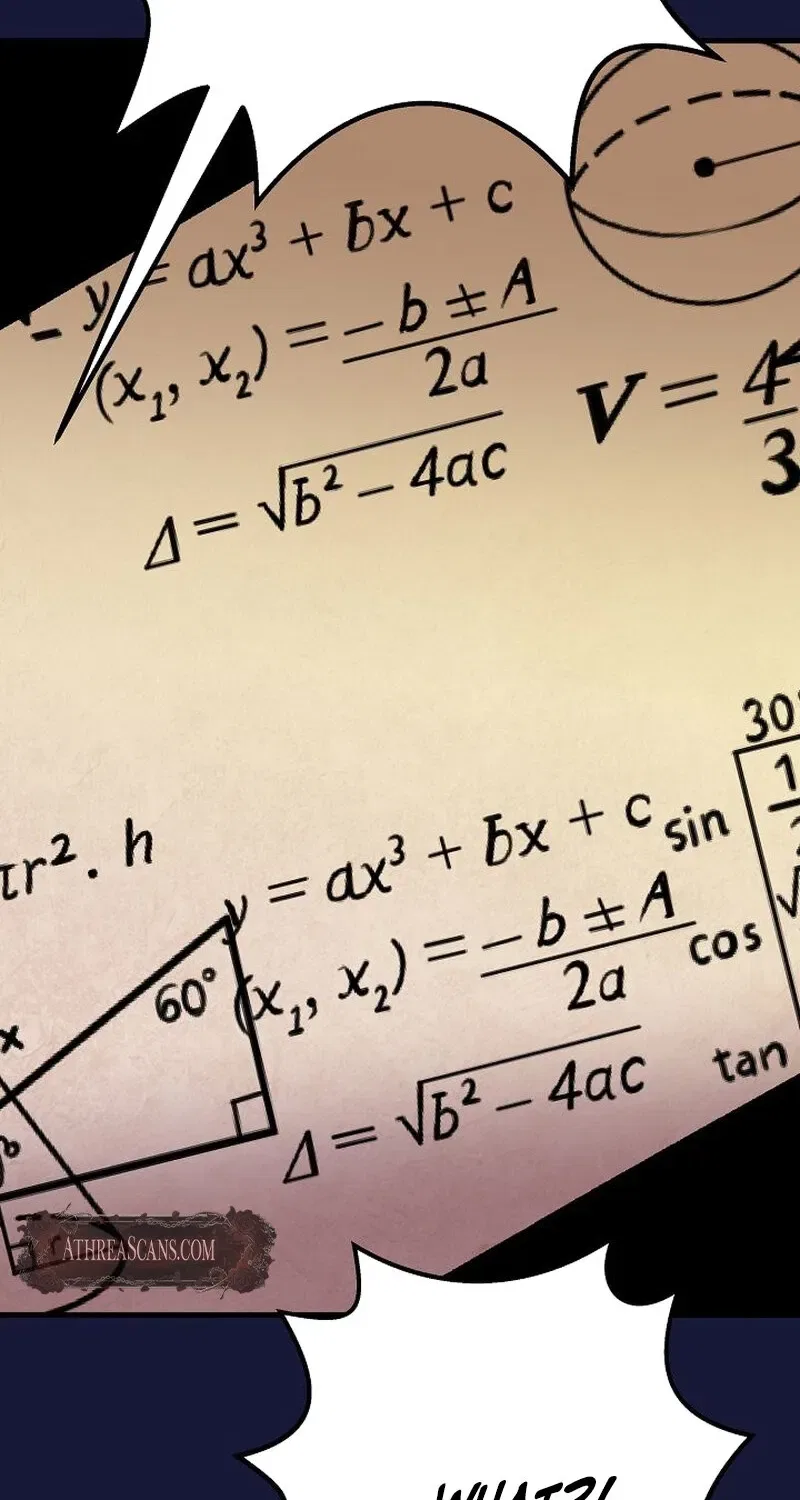 y = ax³ + bx + c
(x₁, x₂) = (-b ± A)/2a
Δ = √(b² - 4ac)
V = 4/3
πr² . h
30°
y = ax³ + bx + c
sin
(x₁, x₂) = (-b ± A)/2a
cos
60°
x
Δ = √(b² - 4ac)
tan
ATHREASCANS.COM
WHAT?!